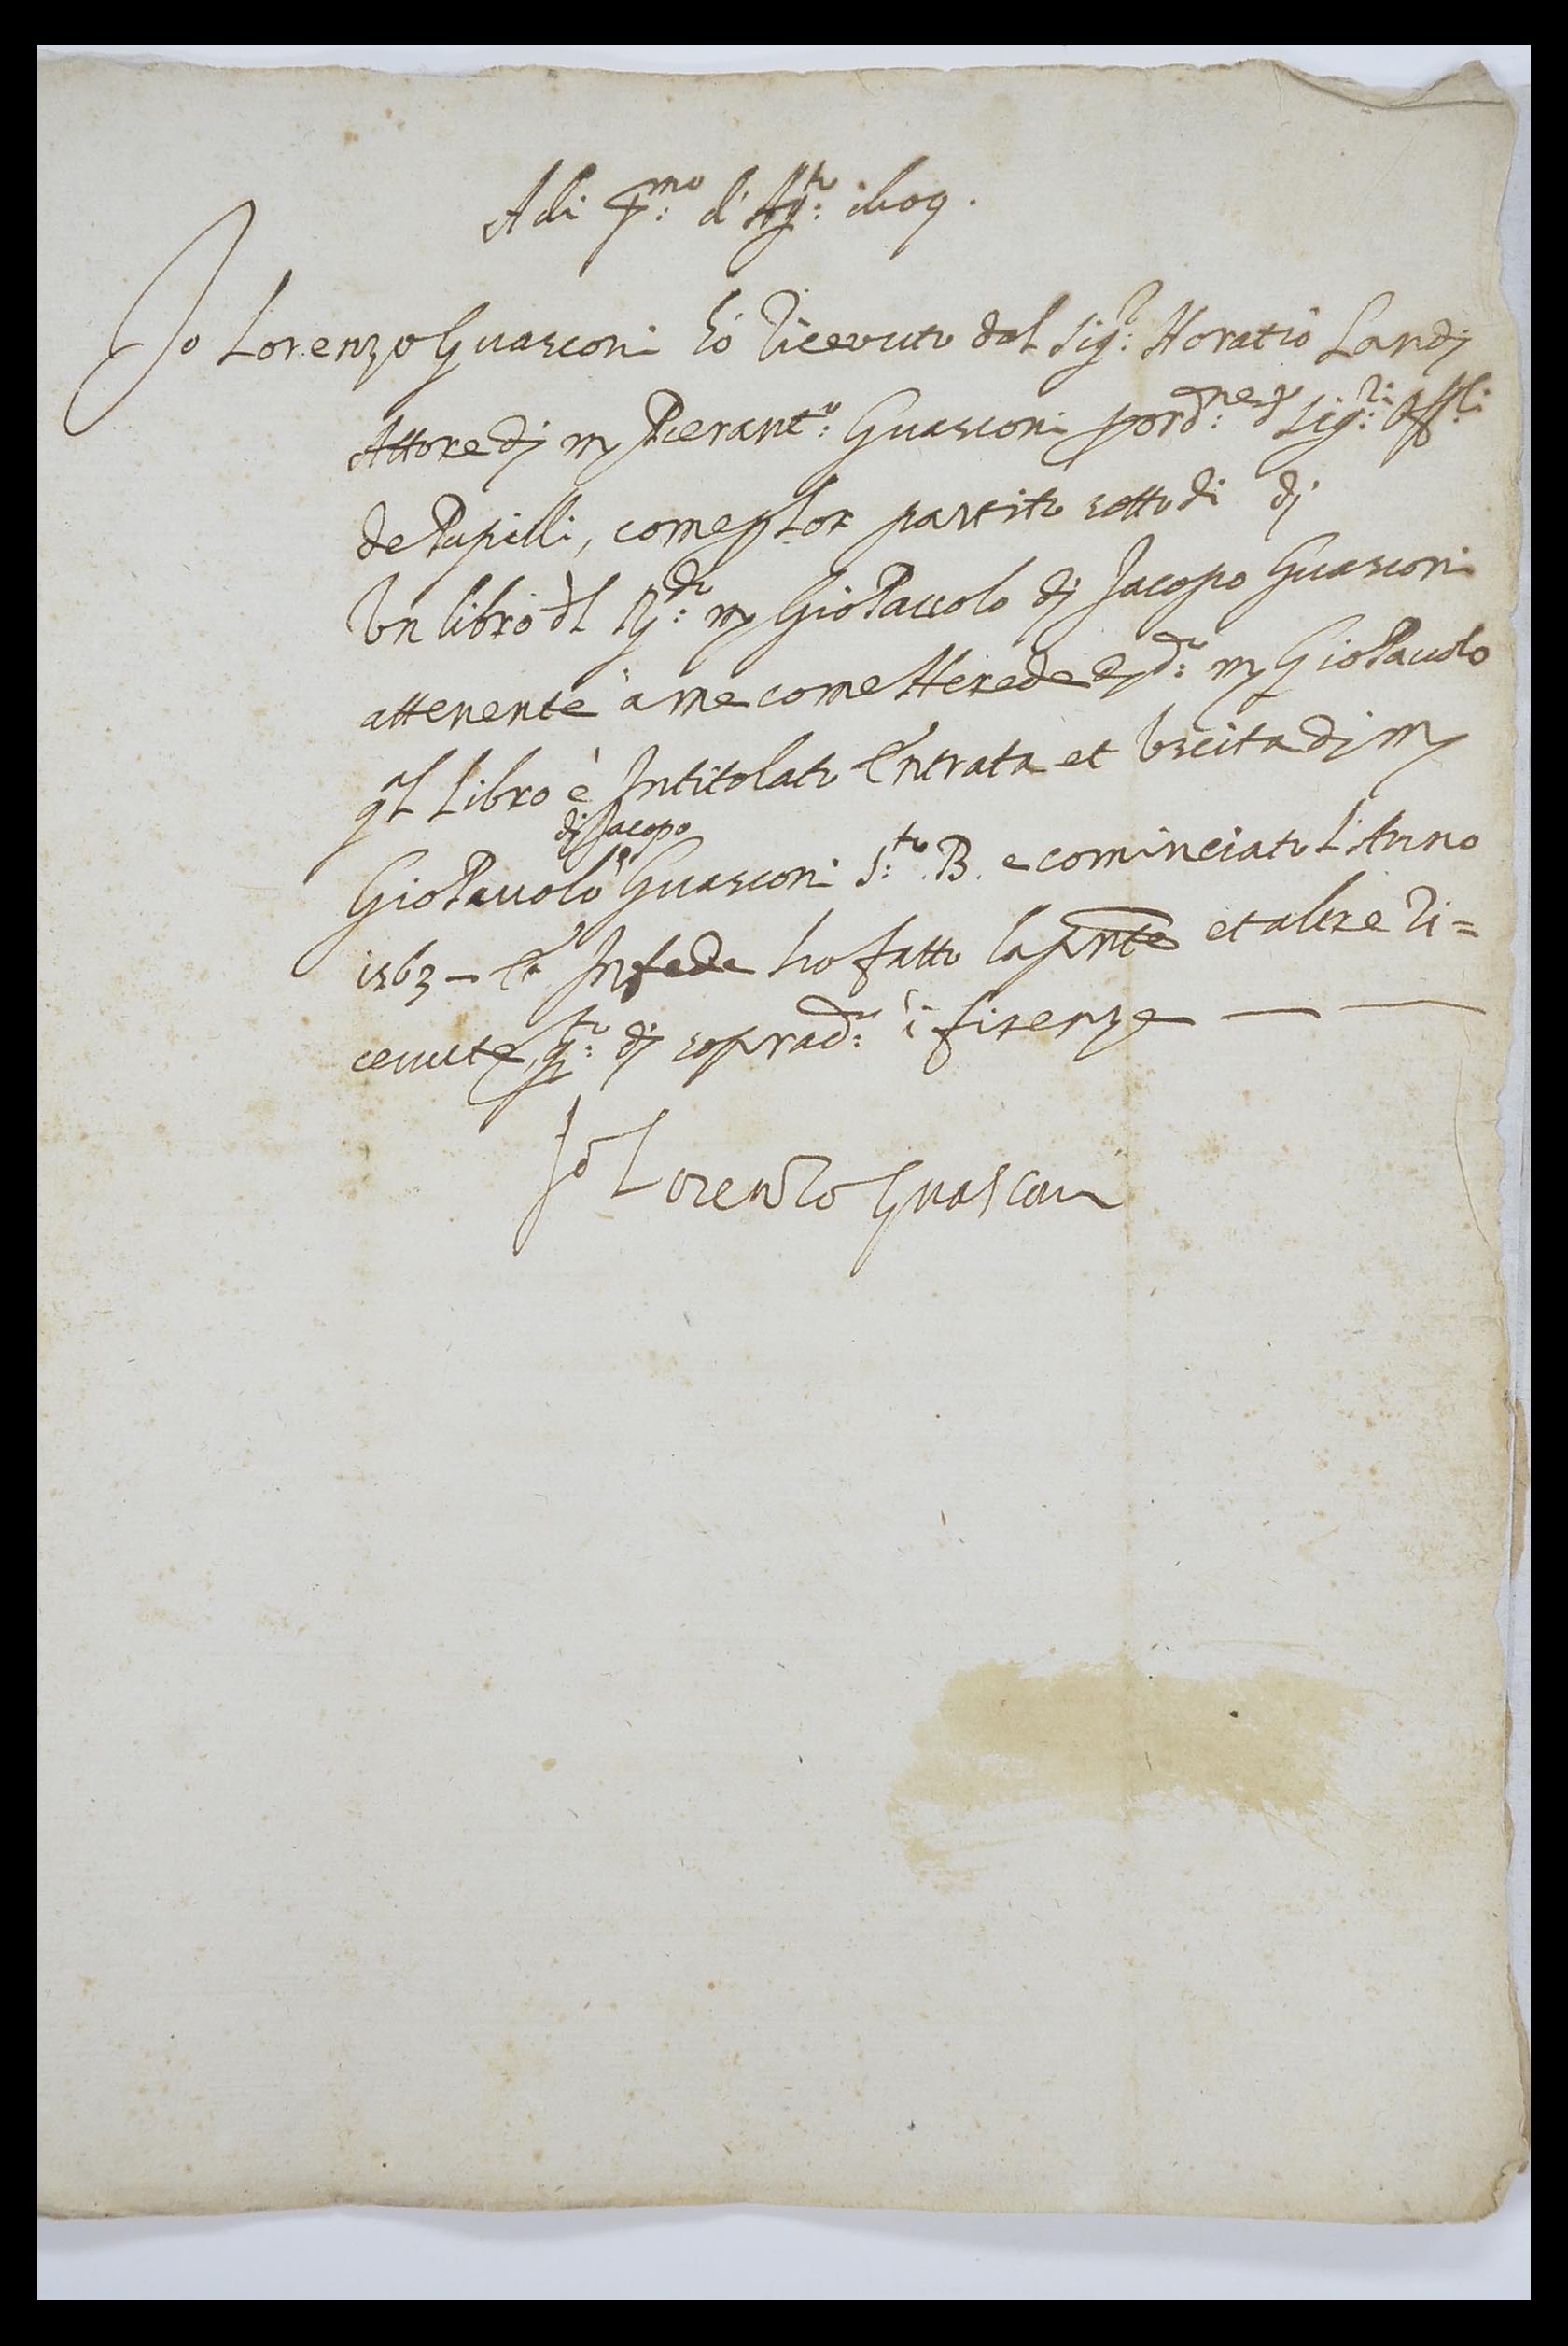 A di p.mo d'Ag.to 1609.
Io Lorenzo Guasconi hò ricevuto dal Sig.r Horatio Landj
Attore dj m Pierant.o Guasconi p ord.ne d Sig.ri Off.li
de Pupilli, come p lor partito sotto di dj
Un libro dl q.do m Gio Pauolo dj Jacopo Guasconi
attenente à me come Herede dj d.o m Gio Pauolo
ql Libro è Intitolato Entrata et Uscita dj m
dj Jacopo
Gio Pauolo Guasconi S.to B. e cominciato l'Anno
1563 – E In fede ho fatto la pnte et altre ri=
ceuute, q.to dj soprad.o i firenze
Io Lorenzo Guasconi